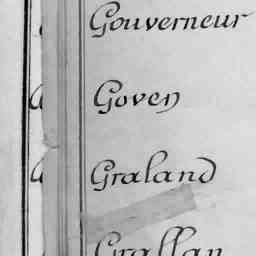 Gouverneur
Goven
Graland
Grallan